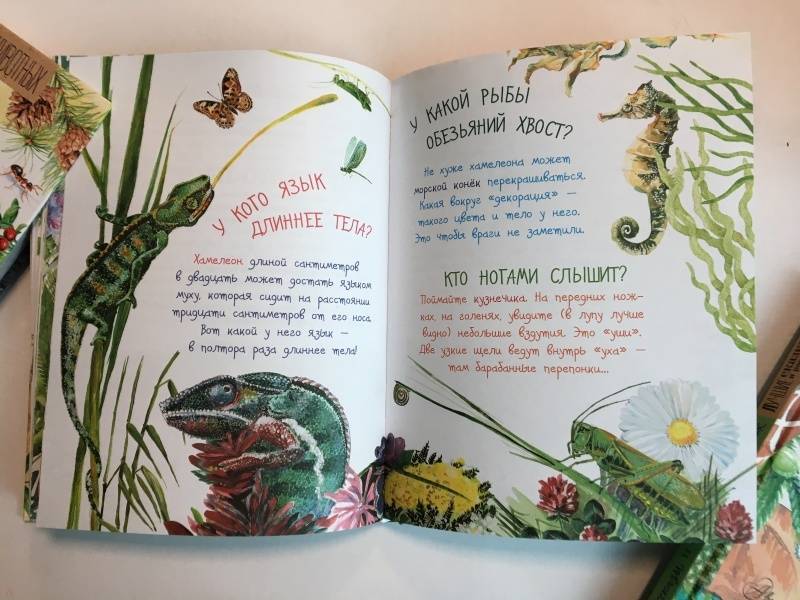 ЖИВОТНЫХ
У КОГО ЯЗЫК
ДЛИННЕЕ ТЕЛА?
Хамелеон длиной сантиметров
в двадцать может достать языком
муху, которая сидит на расстоянии
тридцати сантиметров от его носа.
Вот какой у него язык —
в полтора раза длиннее тела!
У КАКОЙ РЫБЫ
ОБЕЗЬЯНИЙ ХВОСТ?
Не хуже хамелеона может
морской конёк перекрашиваться.
Какая вокруг «декорация» —
такого цвета и тело у него.
Это чтобы враги не заметили.
КТО НОГАМИ СЛЫШИТ?
Поймайте кузнечика. На передних нож-
ках, на голенях, увидите (в лупу лучше
видно) небольшие вздутия. Это «уши».
Две узкие щели ведут внутрь «уха» —
там барабанные перепонки...